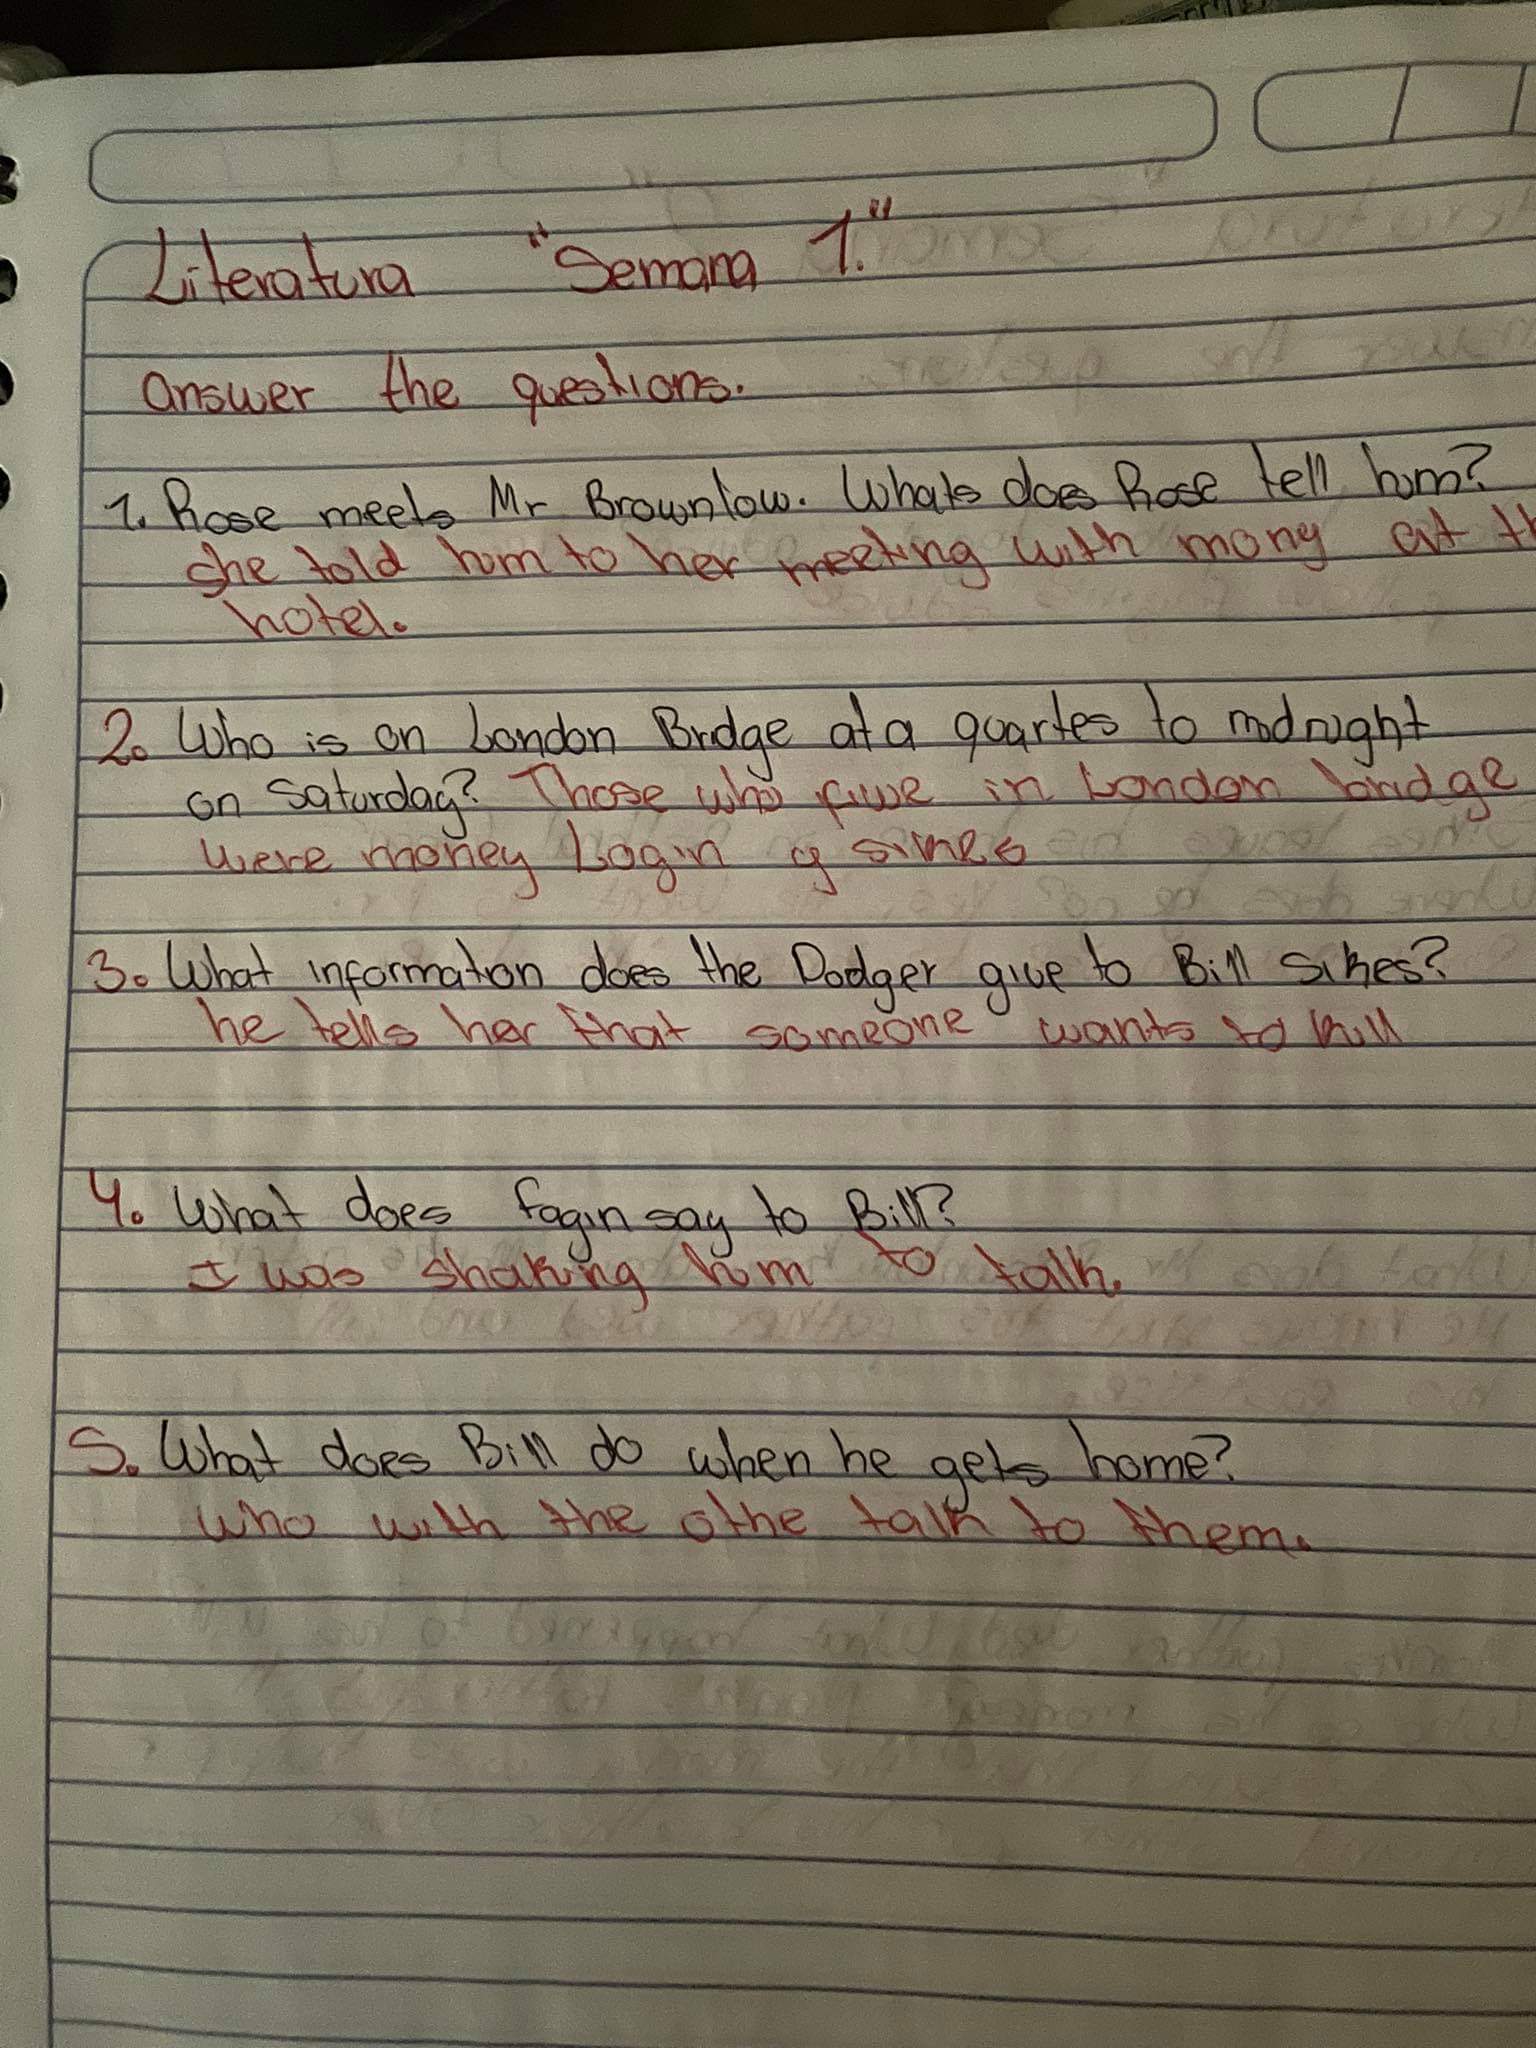 Literatura "Semana 1."
answer the questions.
1. Rose meets Mr Brownlow. Whats does Rose tell him?
she told him to her meeting with mony at th
hotel.
2. Who is on London Bridge at a quartes to midnight
on Saturday? Those who in London bridge
were money Login y sines
3. What information does the Dodger give to Bill Sikes?
he tells her that someone wants to kill
4. What does fagin say to Bill?
I was shaking him to talk.
5. What does Bill do when he gets home?
who with the othe talk to them.